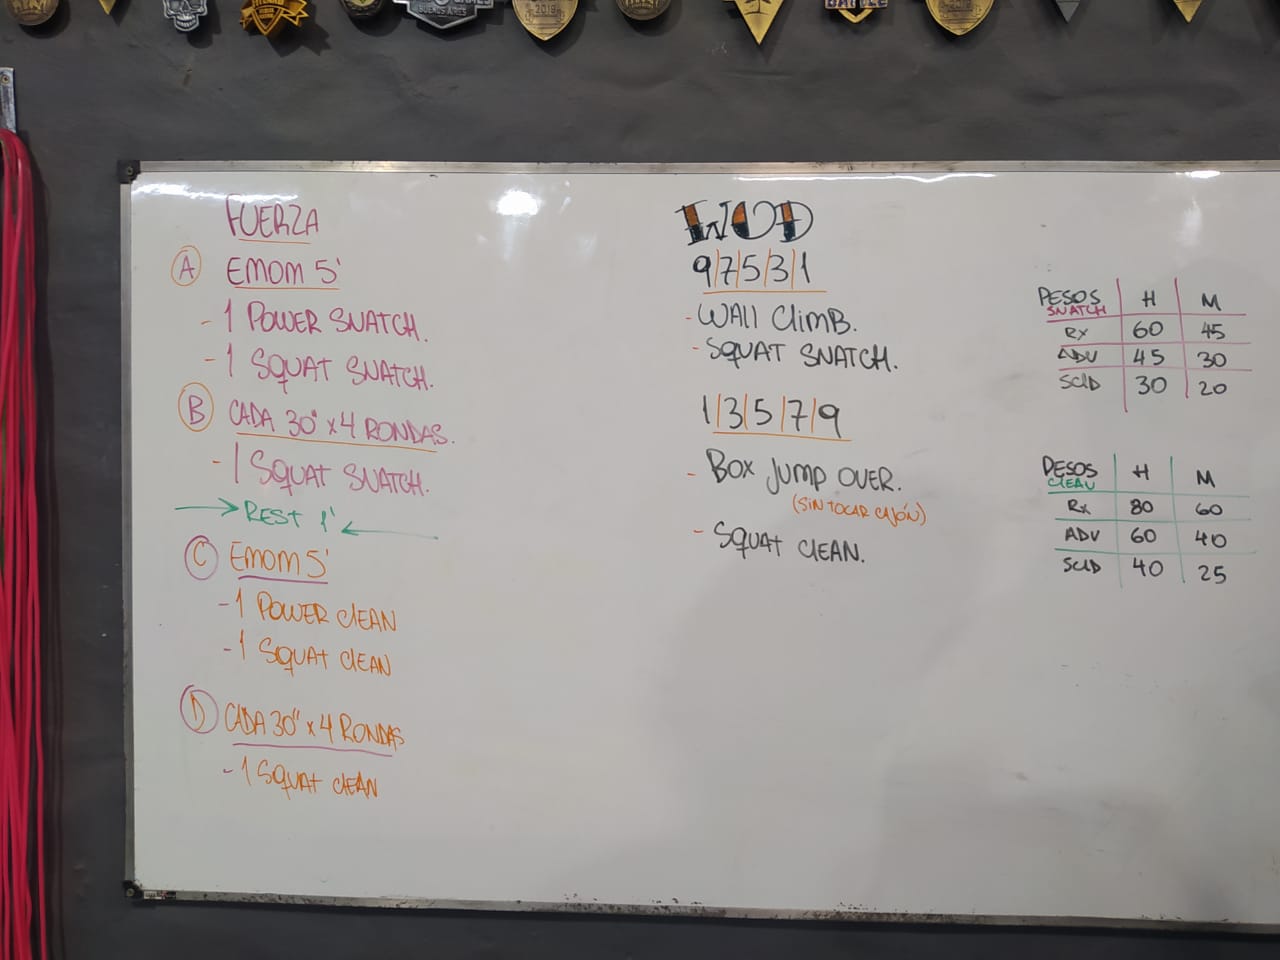 FUERZA
A EMOM 5'
- 1 POWER SNATCH.
- 1 SQUAT SNATCH.
B CADA 30" x 4 RONDAS.
- 1 SQUAT SNATCH.
→ REST 1' ←
C EMOM 5'
- 1 POWER CLEAN
- 1 SQUAT CLEAN
D CADA 30" x 4 RONDAS
- 1 SQUAT CLEAN
WOD
9/7/5/3/1
- WALL CLIMB.
- SQUAT SNATCH.
1/3/5/7/9
- BOX JUMP OVER.
(SIN TOCAR CAJÓN)
- SQUAT CLEAN.
PESOS H M
SNATCH
Rx 60 45
ADV 45 30
SCLD 30 20
PESOS H M
CLEAN
Rx 80 60
ADV 60 40
SCLD 40 25
BUENOS AIRES
2019